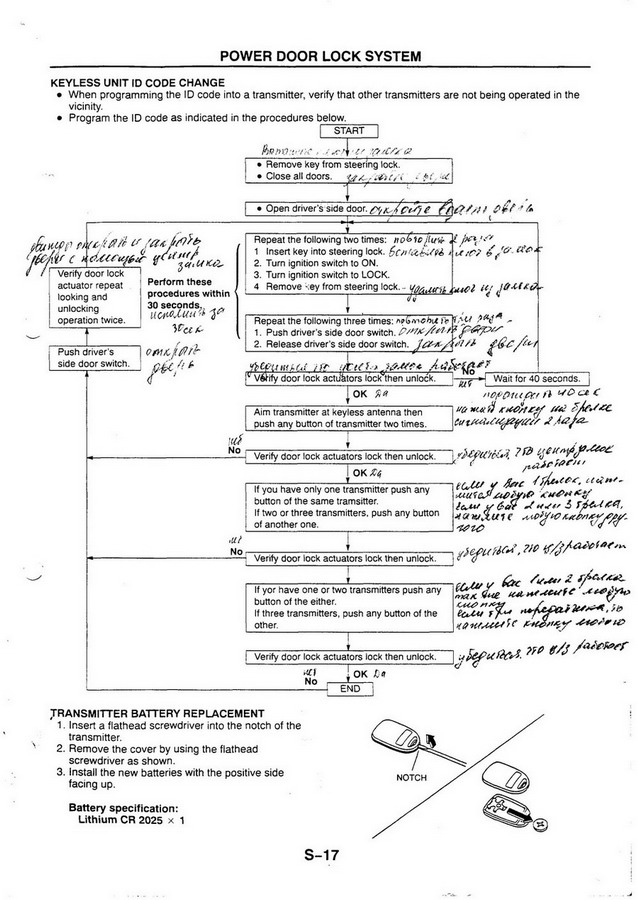 POWER DOOR LOCK SYSTEM
KEYLESS UNIT ID CODE CHANGE
• When programming the ID code into a transmitter, verify that other transmitters are not being operated in the
vicinity.
• Program the ID code as indicated in the procedures below.
START
• Remove key from steering lock.
• Close all doors.
• Open driver's side door. откройте
Repeat the following two times: повторить 2 раза
1 Insert key into steering lock. вставить ключ в замок
2. Turn ignition switch to ON.
3. Turn ignition switch to LOCK.
4 Remove key from steering lock. - удалить ключ из замка
Perform these
procedures within
30 seconds.
исполнить за
30 сек
Repeat the following three times:
1. Push driver's side door switch. открыть двери
2. Release driver's side door switch. закрыть двери
открыть и закрыть
замка
Verify door lock
actuator repeat
looking and
unlocking
operation twice.
Push driver's
side door switch.
открыть
дверь
Verify door lock actuators lock then unlock.
No
нет
Wait for 40 seconds.
40 сек
OK Да
Aim transmitter at keyless antenna then
push any button of transmitter two times.
нажать кнопку на брелке
сигнализации 2 раза
нет
No
Verify door lock actuators lock then unlock.
убедиться, что центр замок
работает
OK Да
If you have only one transmitter push any
button of the same tramsitter.
If two or three transmitters, push any button
of another one.
если у вас 1 брелок, нажм-
любую кнопку
если у вас 2 или 3 брелка,
нажмите любую кнопку дру-
гого
нет
No
Verify door lock actuators lock then unlock.
убедиться, что ц/з работает
If yor have one or two transmitters push any
button of the either.
If three transmitters, push any button of the
other.
если у вас 1 или 2 брелка
так же нажмите любую
кнопку
если три передатчика, то
нажмите кнопку любого
Verify door lock actuators lock then unlock.
убедиться, что ц/з работает
нет
No
OK Да
END
TRANSMITTER BATTERY REPLACEMENT
1. Insert a flathead screwdriver into the notch of the
transmitter.
2. Remove the cover by using the flathead
screwdriver as shown.
3. Install the new batteries with the positive side
facing up.
Battery specification:
Lithium CR 2025 × 1
NOTCH
S–17